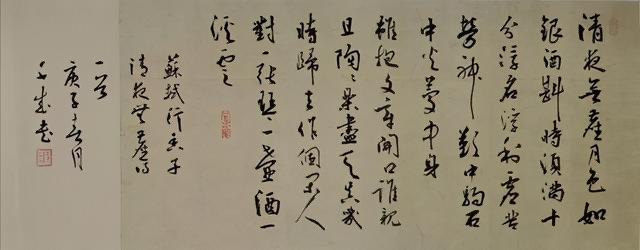 清夜無塵月色如
銀酒斟時須滿十
分浮名浮利虛苦
勞神歎中駒石
中火夢中身
雖抱文章開口誰親
且陶々樂盡天真幾
時歸去作個閒人
對一張琴一壺酒一
溪雲
蘇軾行香子
清夜無塵
庚子月